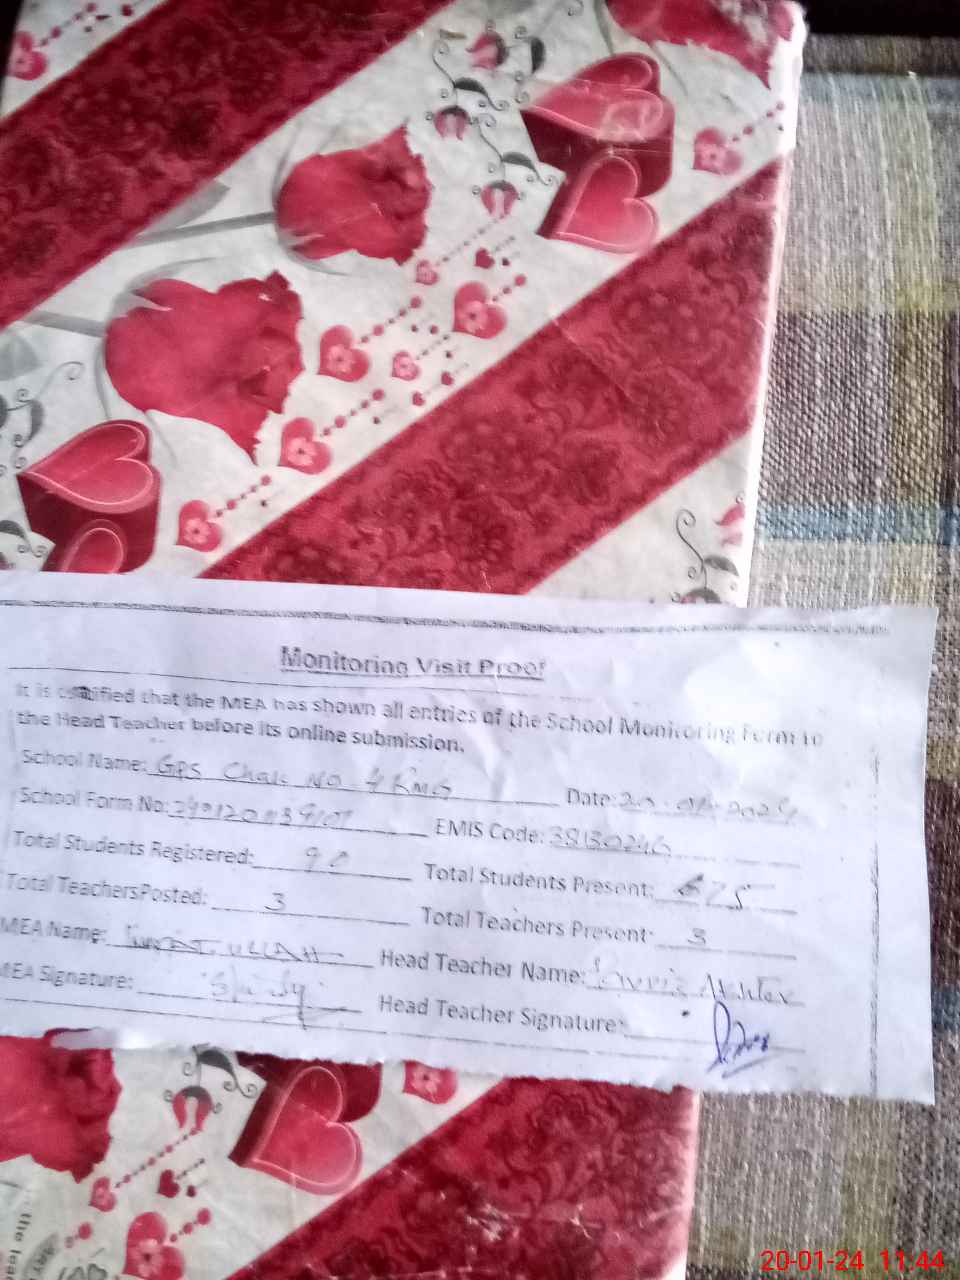 Monitoring Visit Proof
It is certified that the MEA has shown all entries of the School Monitoring Form to
the Head Teacher before its online submission.
School Name: GPS Chak No 4 KMG Date: 20-01-2024
School Form No: EMIS Code: 38130246
Total Students Registered: 90 Total Students Present: 75
Total TeachersPosted: 3 Total Teachers Present: 3
MEA Name: ULLAH Head Teacher Name: Akhter
MEA Signature: Head Teacher Signature:
the lea
20-01-24 11:44